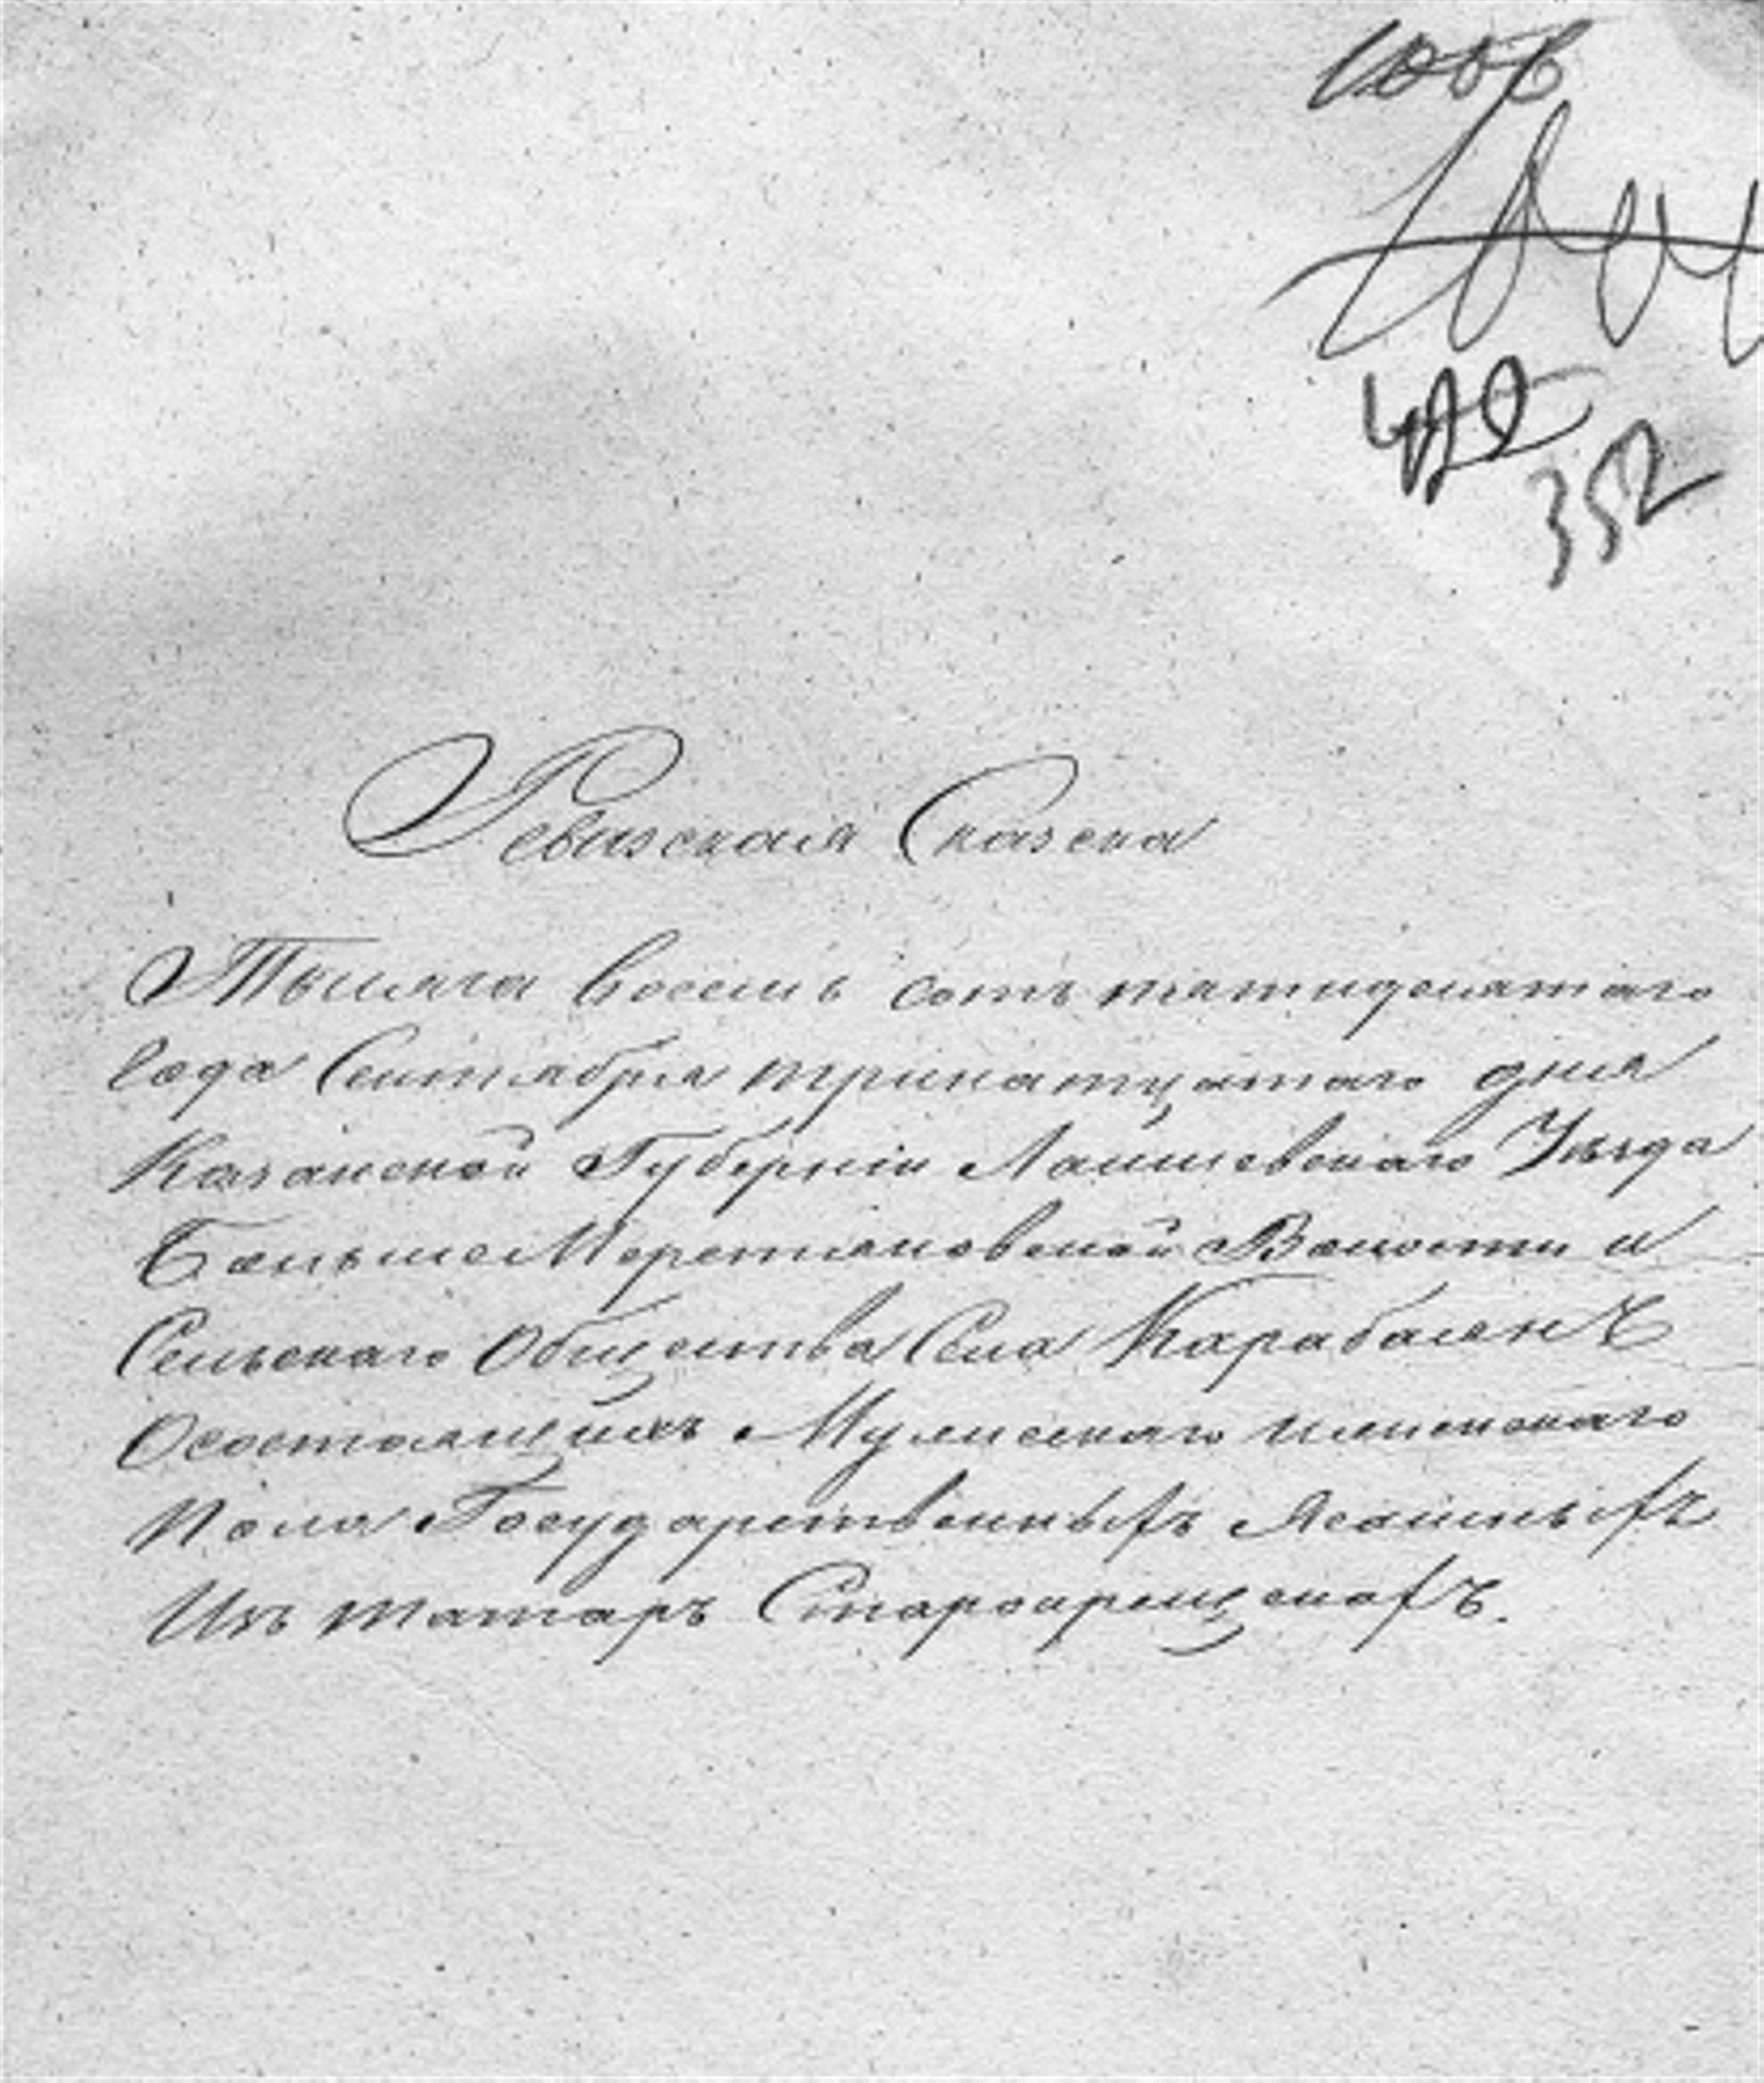 352
Ревизская Сказка
Тысяча восемь сотъ пятидесятаго
Года Сентября тринатцатаго дня
Казанской Губерніи Лаишевскаго Уѣзда
Больше Меретяковской Волости и
Сельскаго Общества Села Карабаянъ
Осостоящихъ Мужескаго и женскаго
Пола Государственныхъ Ясашныхъ
Изъ татаръ Старокрещенахъ.